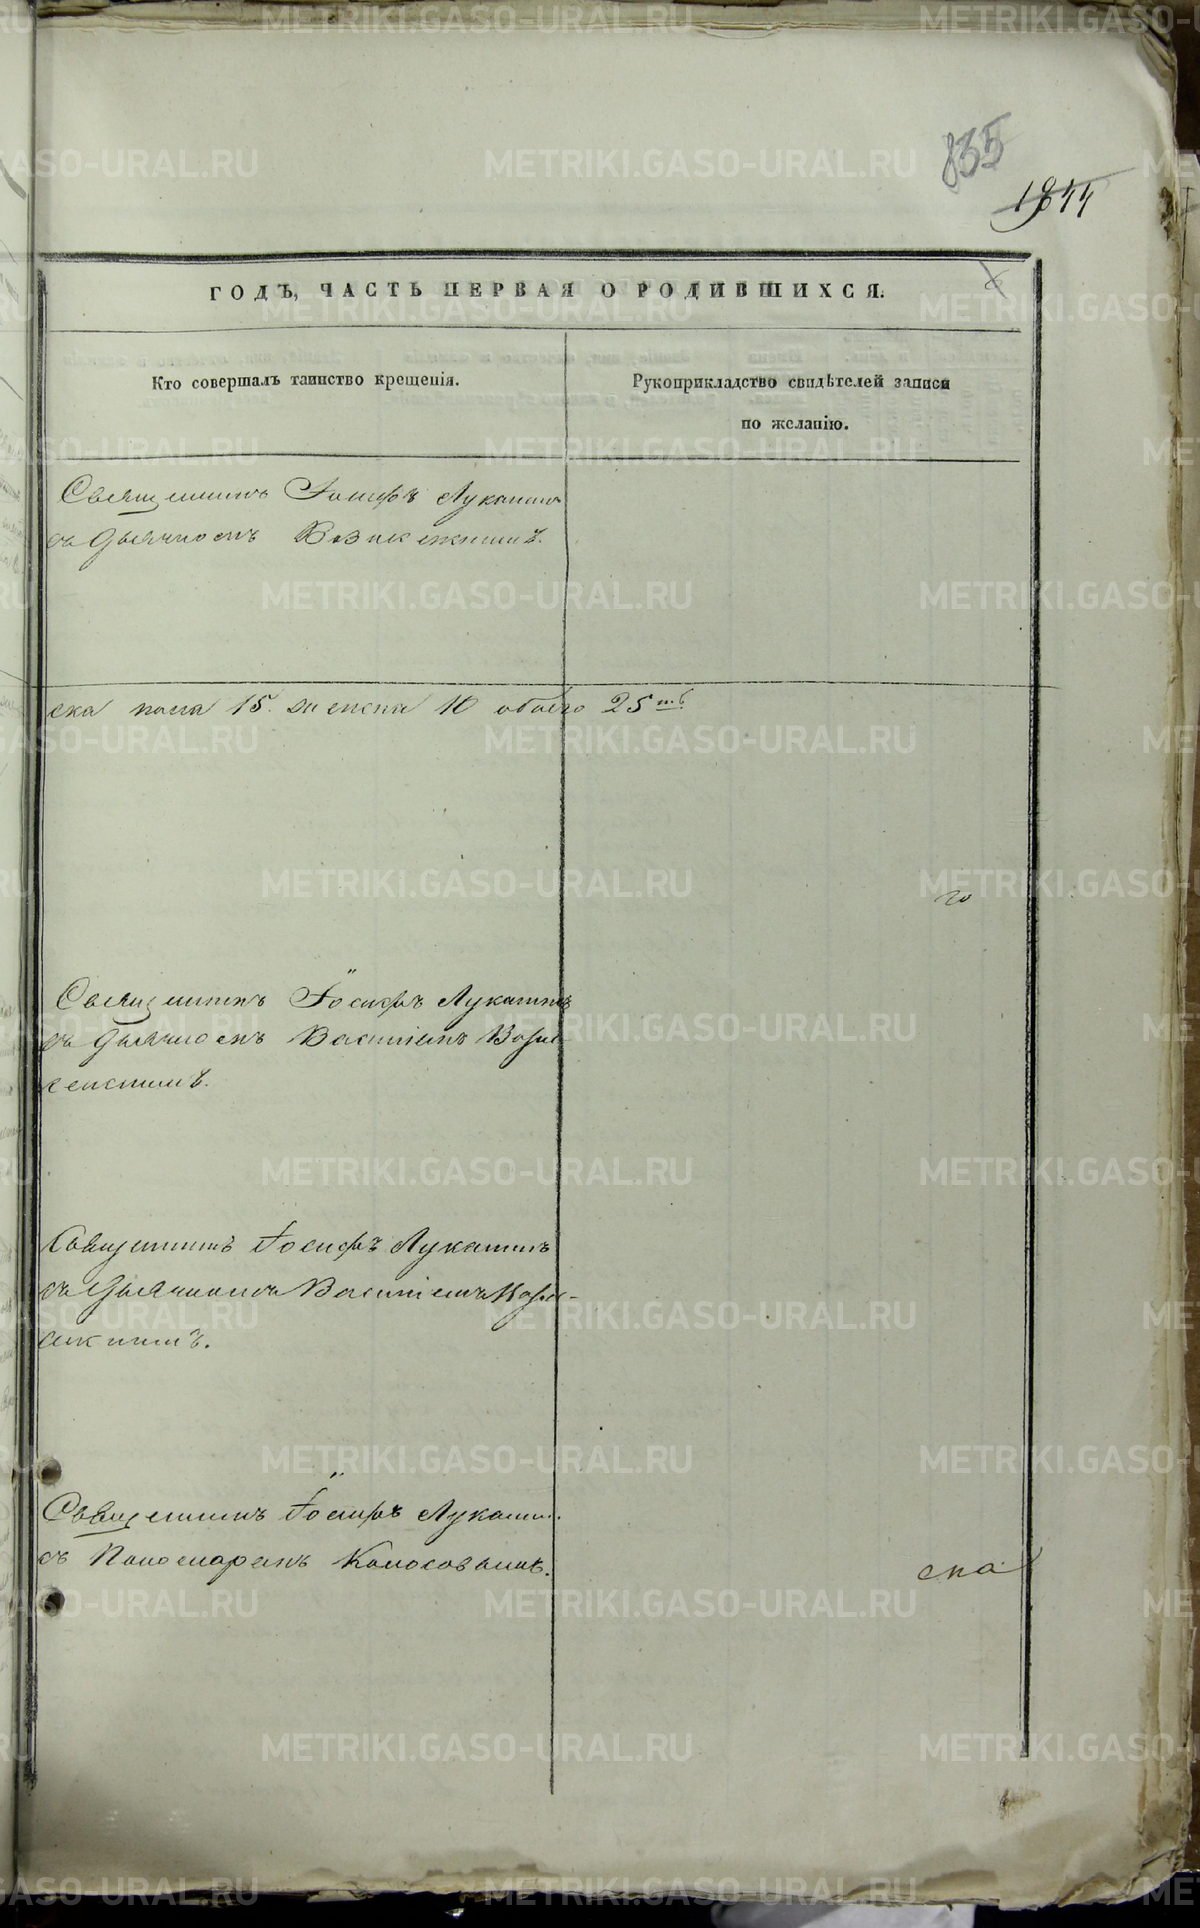 METRIKI.GASO-URAL.RU
835
1844
ГОДЪ, ЧАСТЬ ПЕРВАЯ О РОДИВШИХСЯ.
Кто совершалъ таинство крещенія.
Рукоприкладство свидѣтелей записи
по желанію.
Священникъ Іосифъ Лукашинъ
съ Дьячкомъ
ска пола 15. женска 10 обоего 25ть
го
Священникъ Іосифъ Лукашинъ
съ Дьячкомъ Василіемъ Возне-
сенскимъ.
Священникъ Іосифъ Лукашинъ
съ Дьячкомъ Василіемъ Возне-
сенскимъ.
Священникъ Іосифъ Лукашинъ
съ Пономаремъ Колосовымъ.
ска